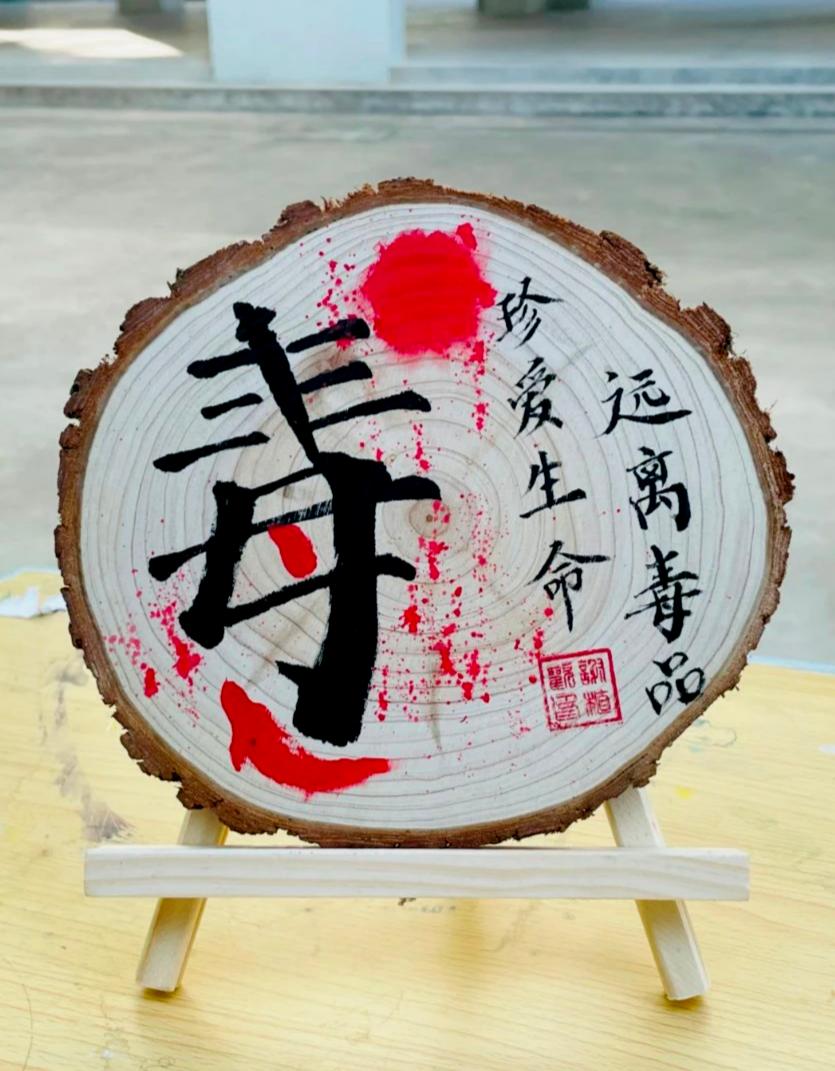 毒
珍爱生命
远离毒品